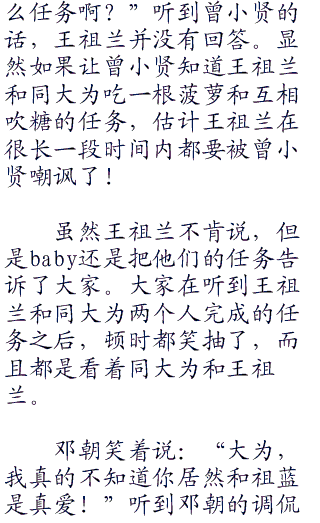 么任务啊？”听到曾小贤的
话，王祖兰并没有回答。显
然如果让曾小贤知道王祖兰
和同大为吃一根菠萝和互相
吹糖的任务，估计王祖兰在
很长一段时间内都要被曾小
贤嘲讽了！
虽然王祖兰不肯说，但
是baby还是把他们的任务告
诉了大家。大家在听到王祖
兰和同大为两个人完成的任
务之后，顿时都笑抽了，而
且都是看着同大为和王祖
兰。
邓朝笑着说：“大为，
我真的不知道你居然和祖蓝
是真爱！”听到邓朝的调侃